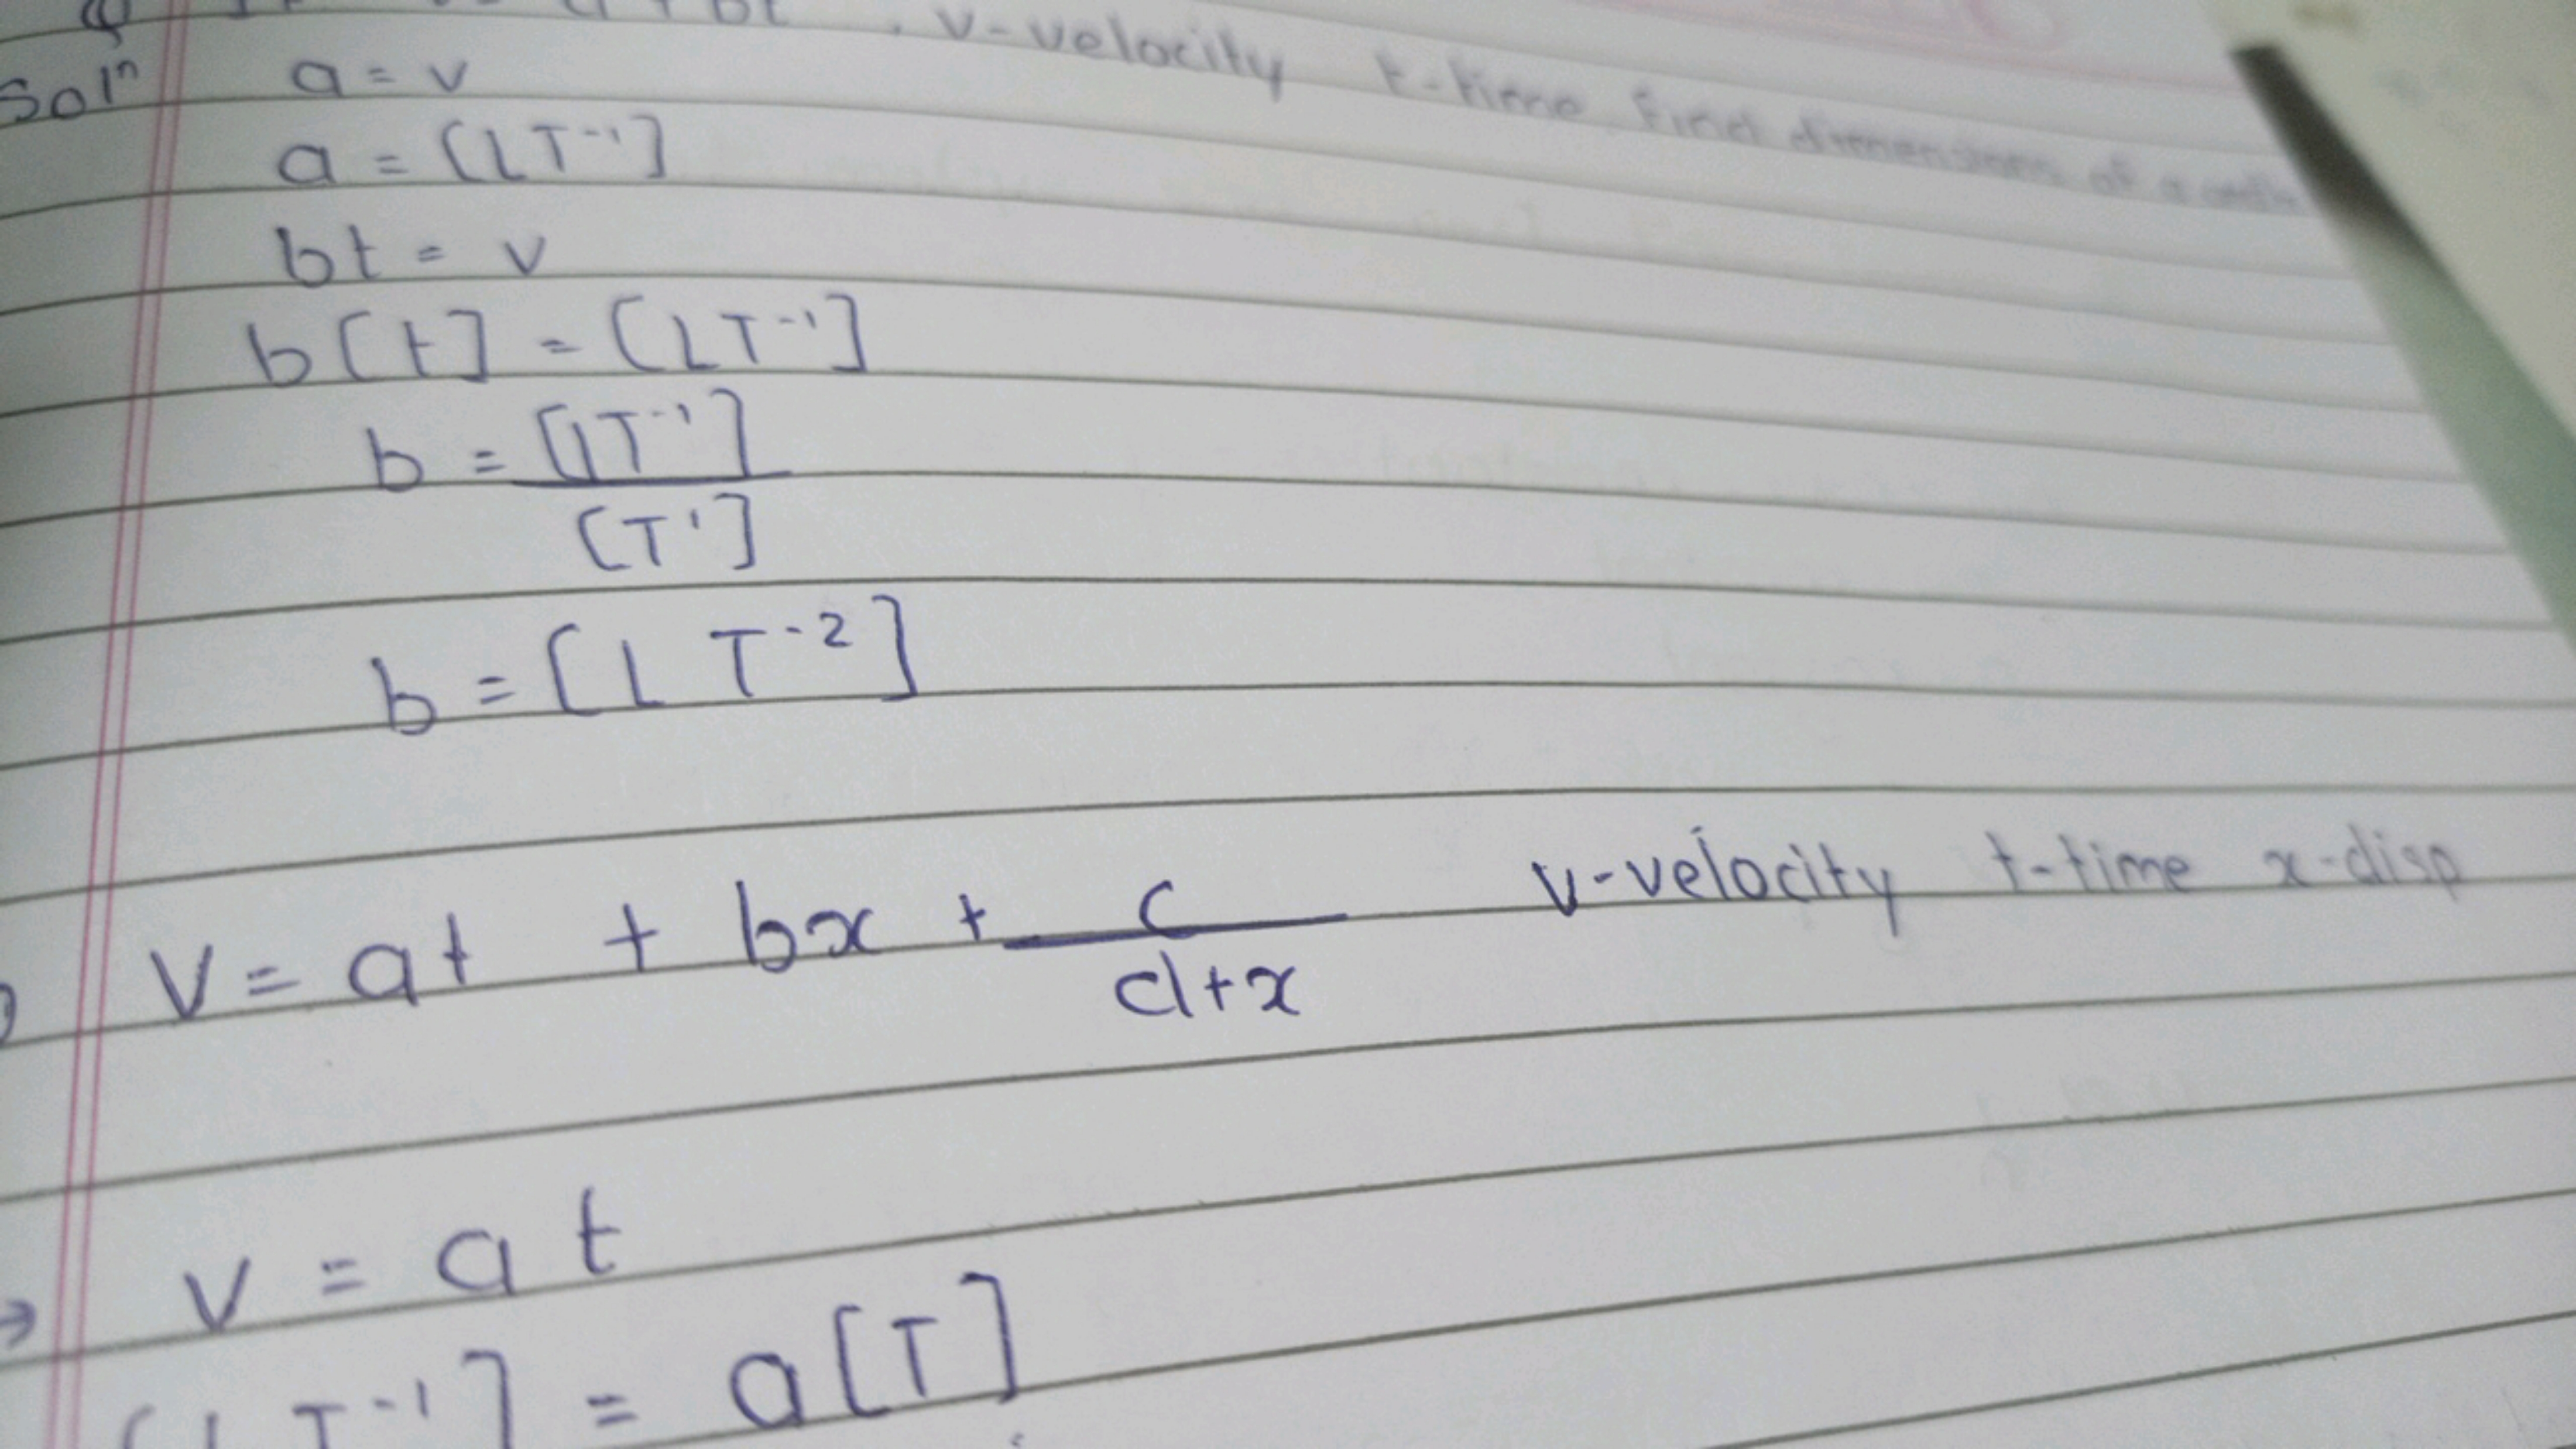 bt . v-velocity t-time. find dimensions of a and
Solⁿ a = v
a = [LT⁻¹]
bt = v
b[t] = [LT⁻¹]
b = [LT⁻¹]
[T¹]
b = [L T⁻²]
v = at + bx + c v-velocity t-time x-disp
d+x
→ v = a t
[L T⁻¹] = a[T]